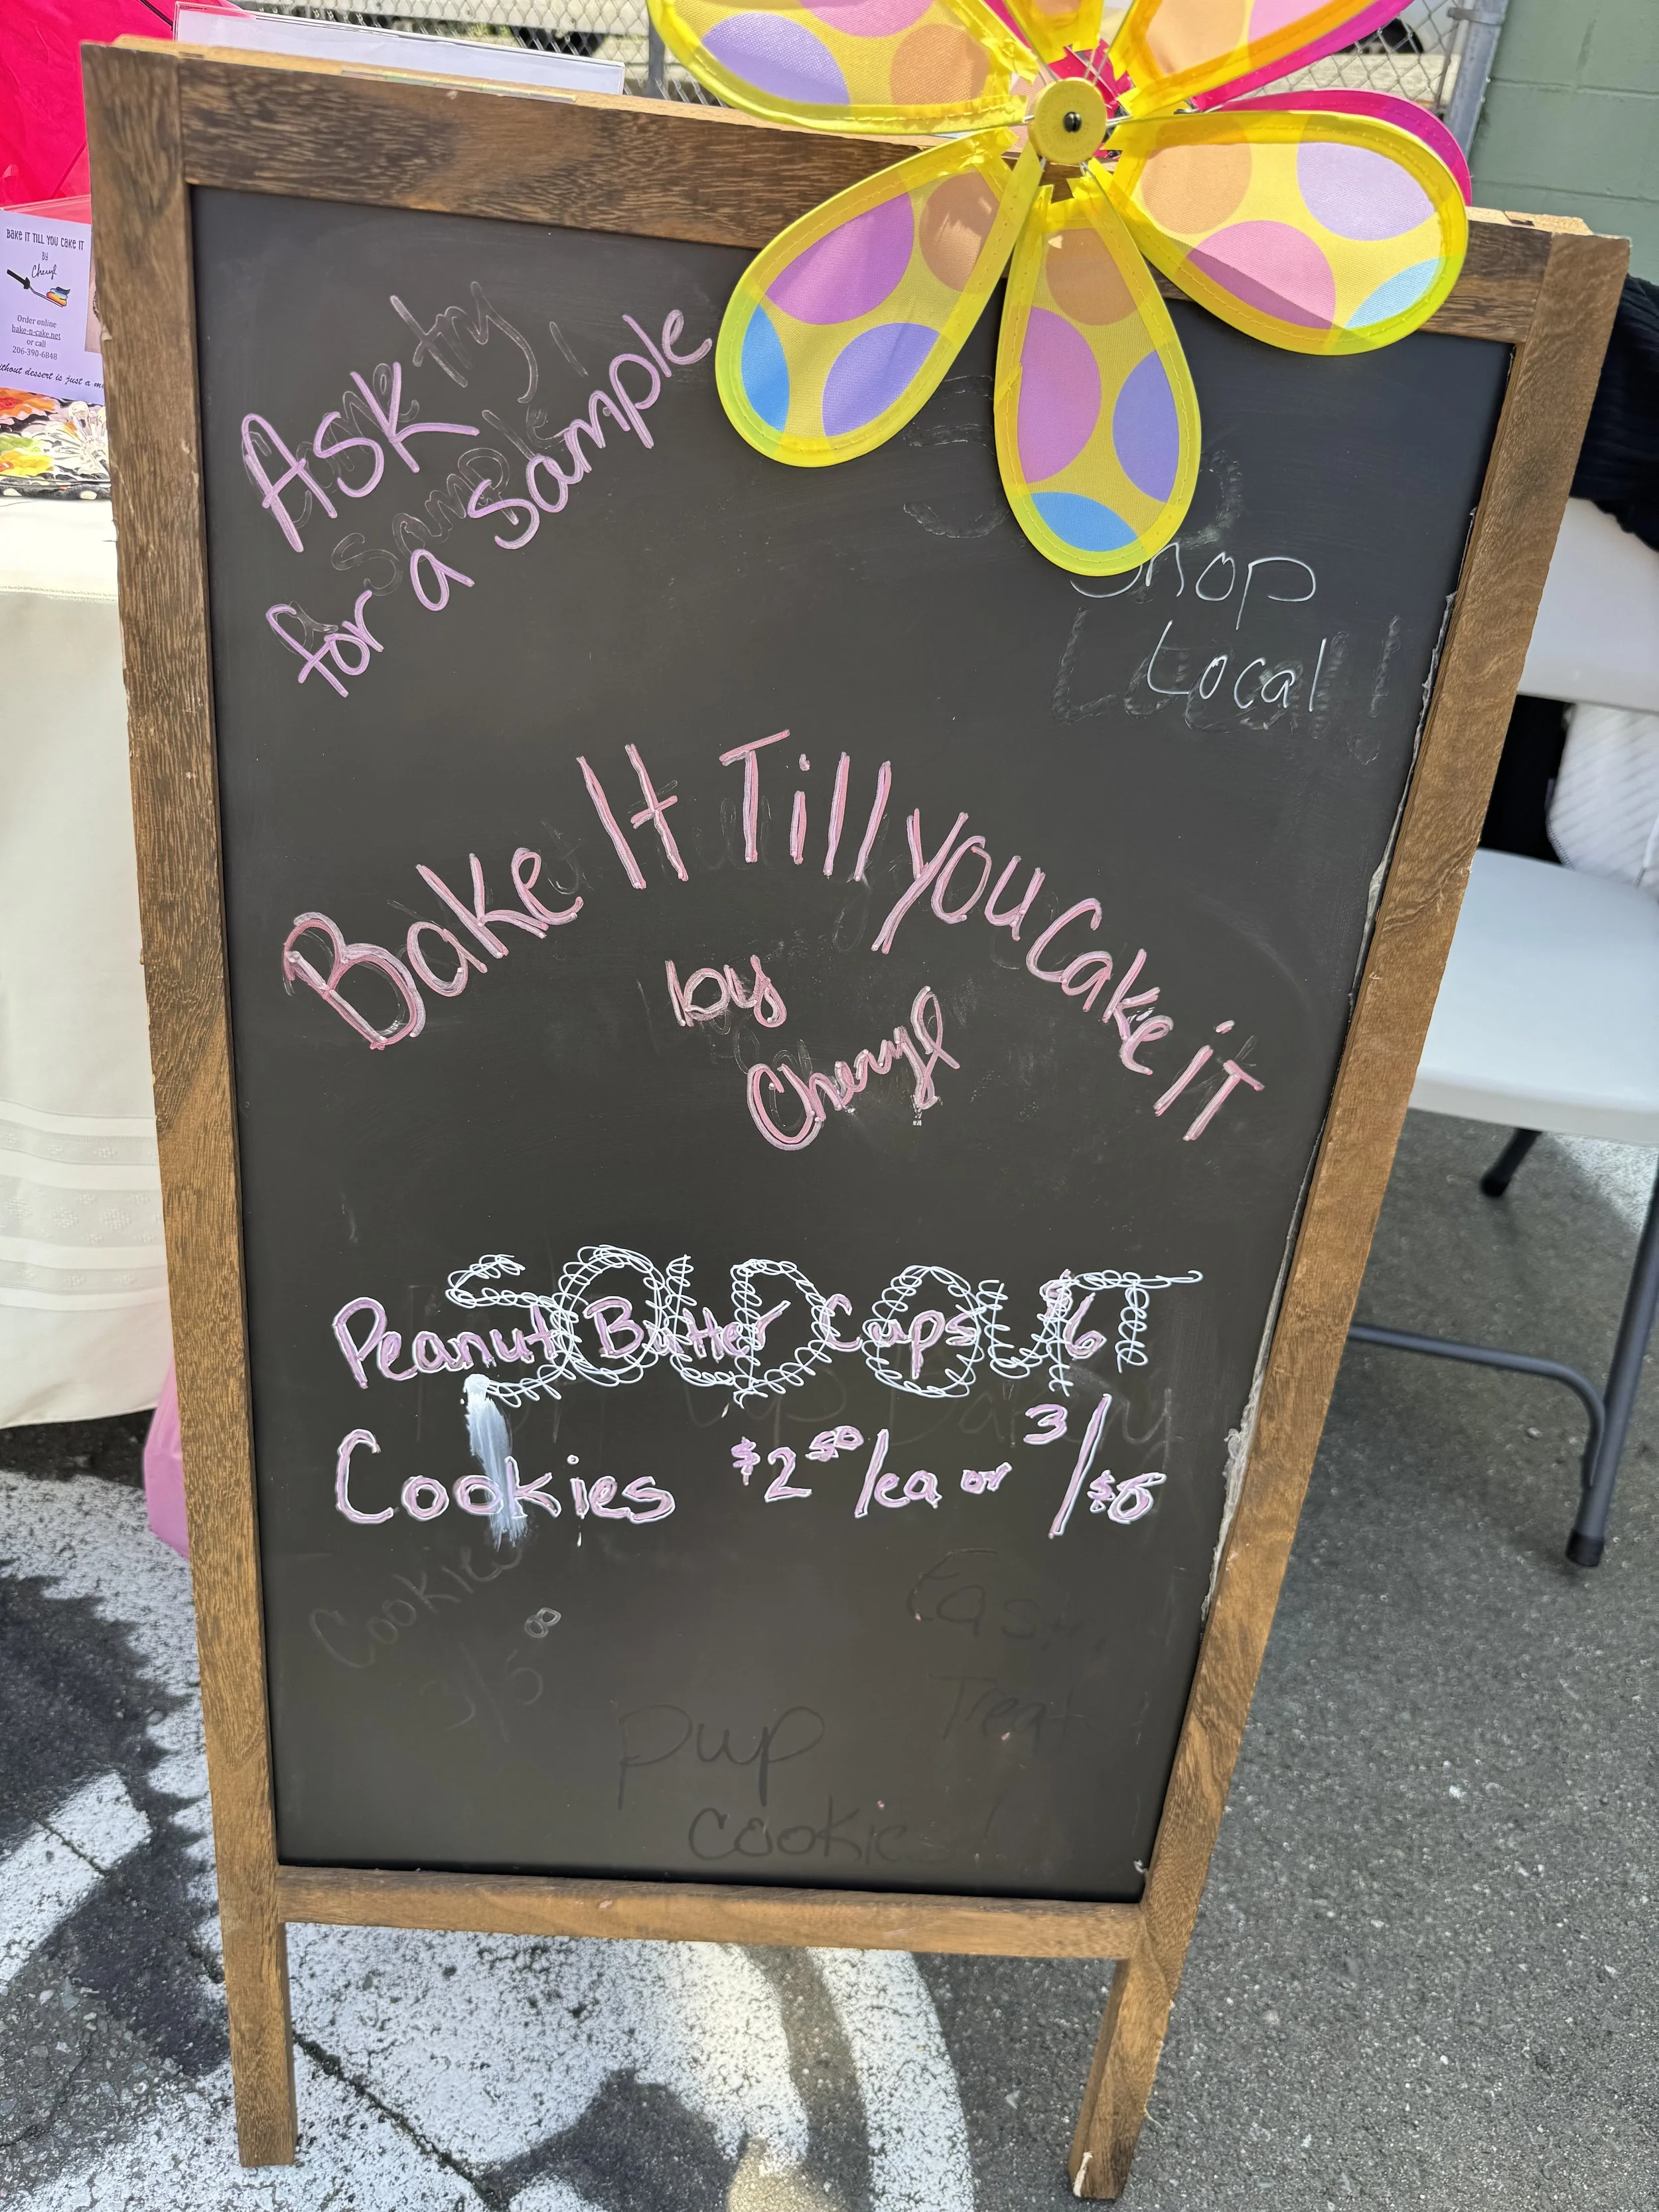 BAKE IT TILL YOU CAKE IT
BY
Cheryl
Order online
bake-n-cake.net
or call
206-390-6848
ithout dessert is just a m
Ask
for a sample
try
Sample
Shop
Local
Bake It Till you Cake iT
by
Cheryl
SOLD OUT
Peanut Butter Cups $6
Cookies $2.50/ea or 3/$6
Cookies
3/5.00
Treat
pup
cookies!